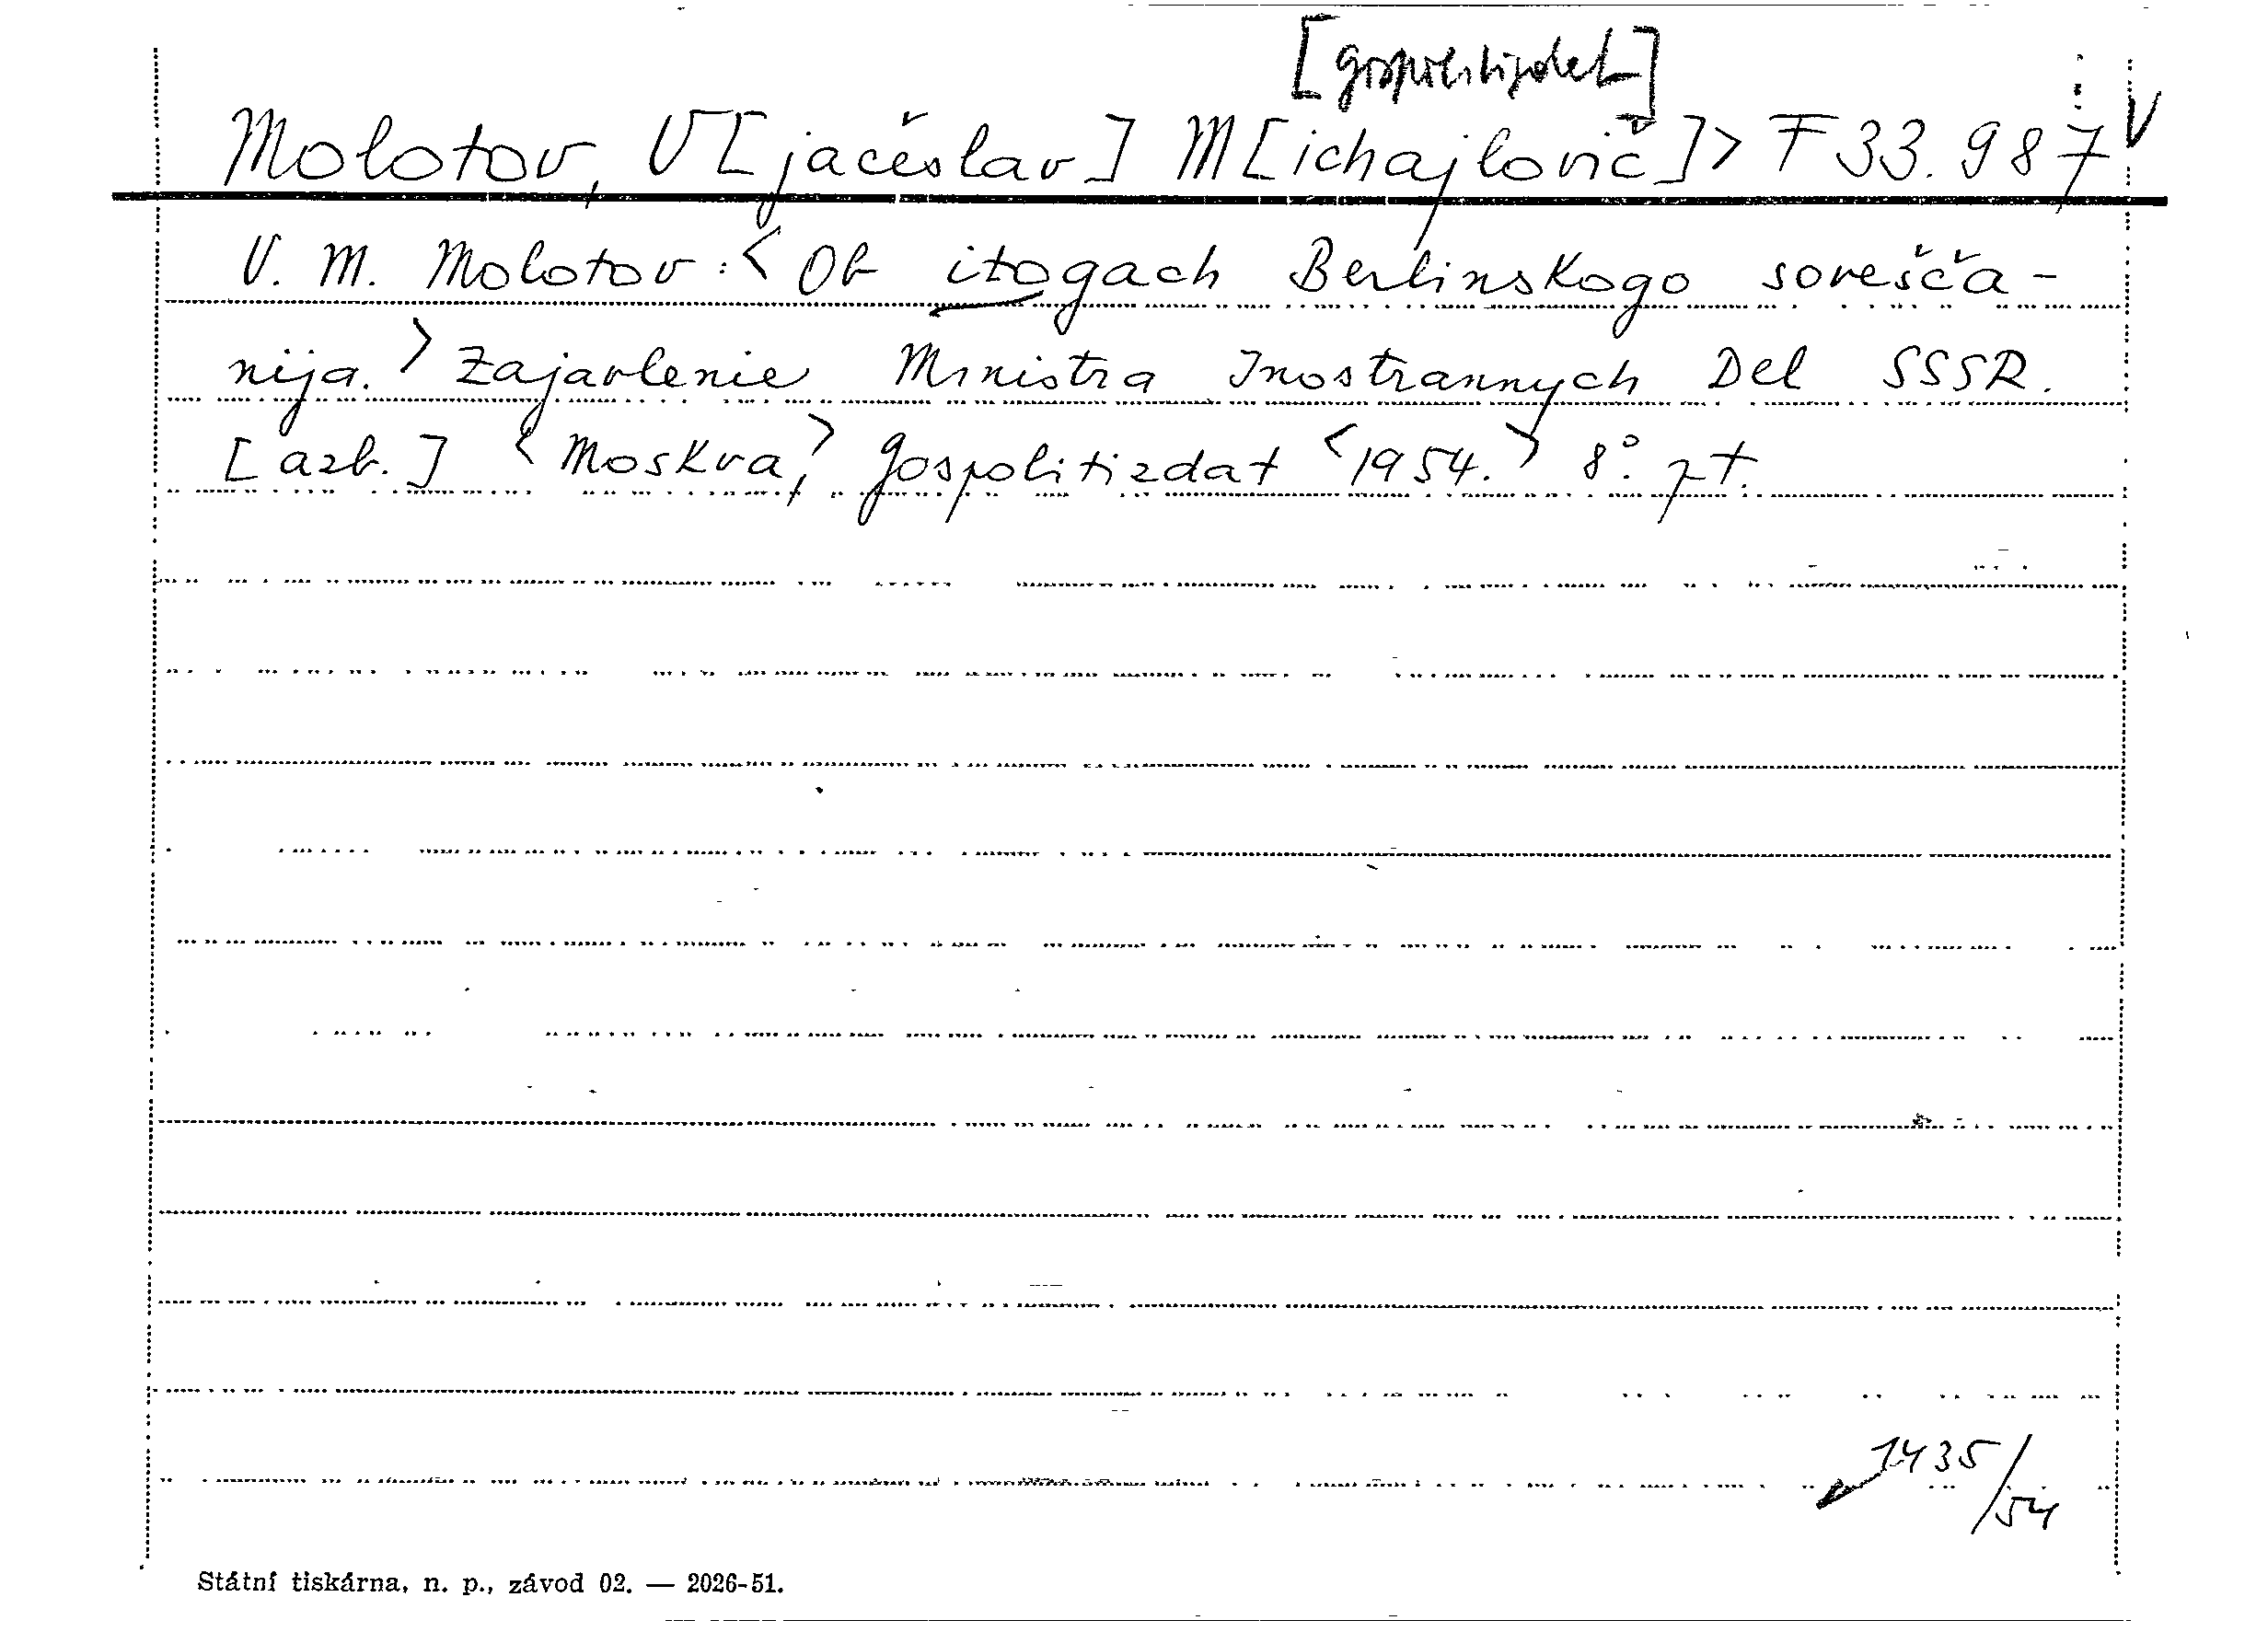 [Gospolitizdat]
Molotov, V[jačeslav] M[ichajlovič]> F 33.987 V
V. M. Molotov: <Ob itogach Berlinskogo sovešča-
nija.> Zajavlenie Ministra Inostrannych Del SSSR.
[azb.] <Moskva,> Gospolitizdat <1954.> 8°. pt.
1435/54
Státní tiskárna, n. p., závod 02. — 2026-51.